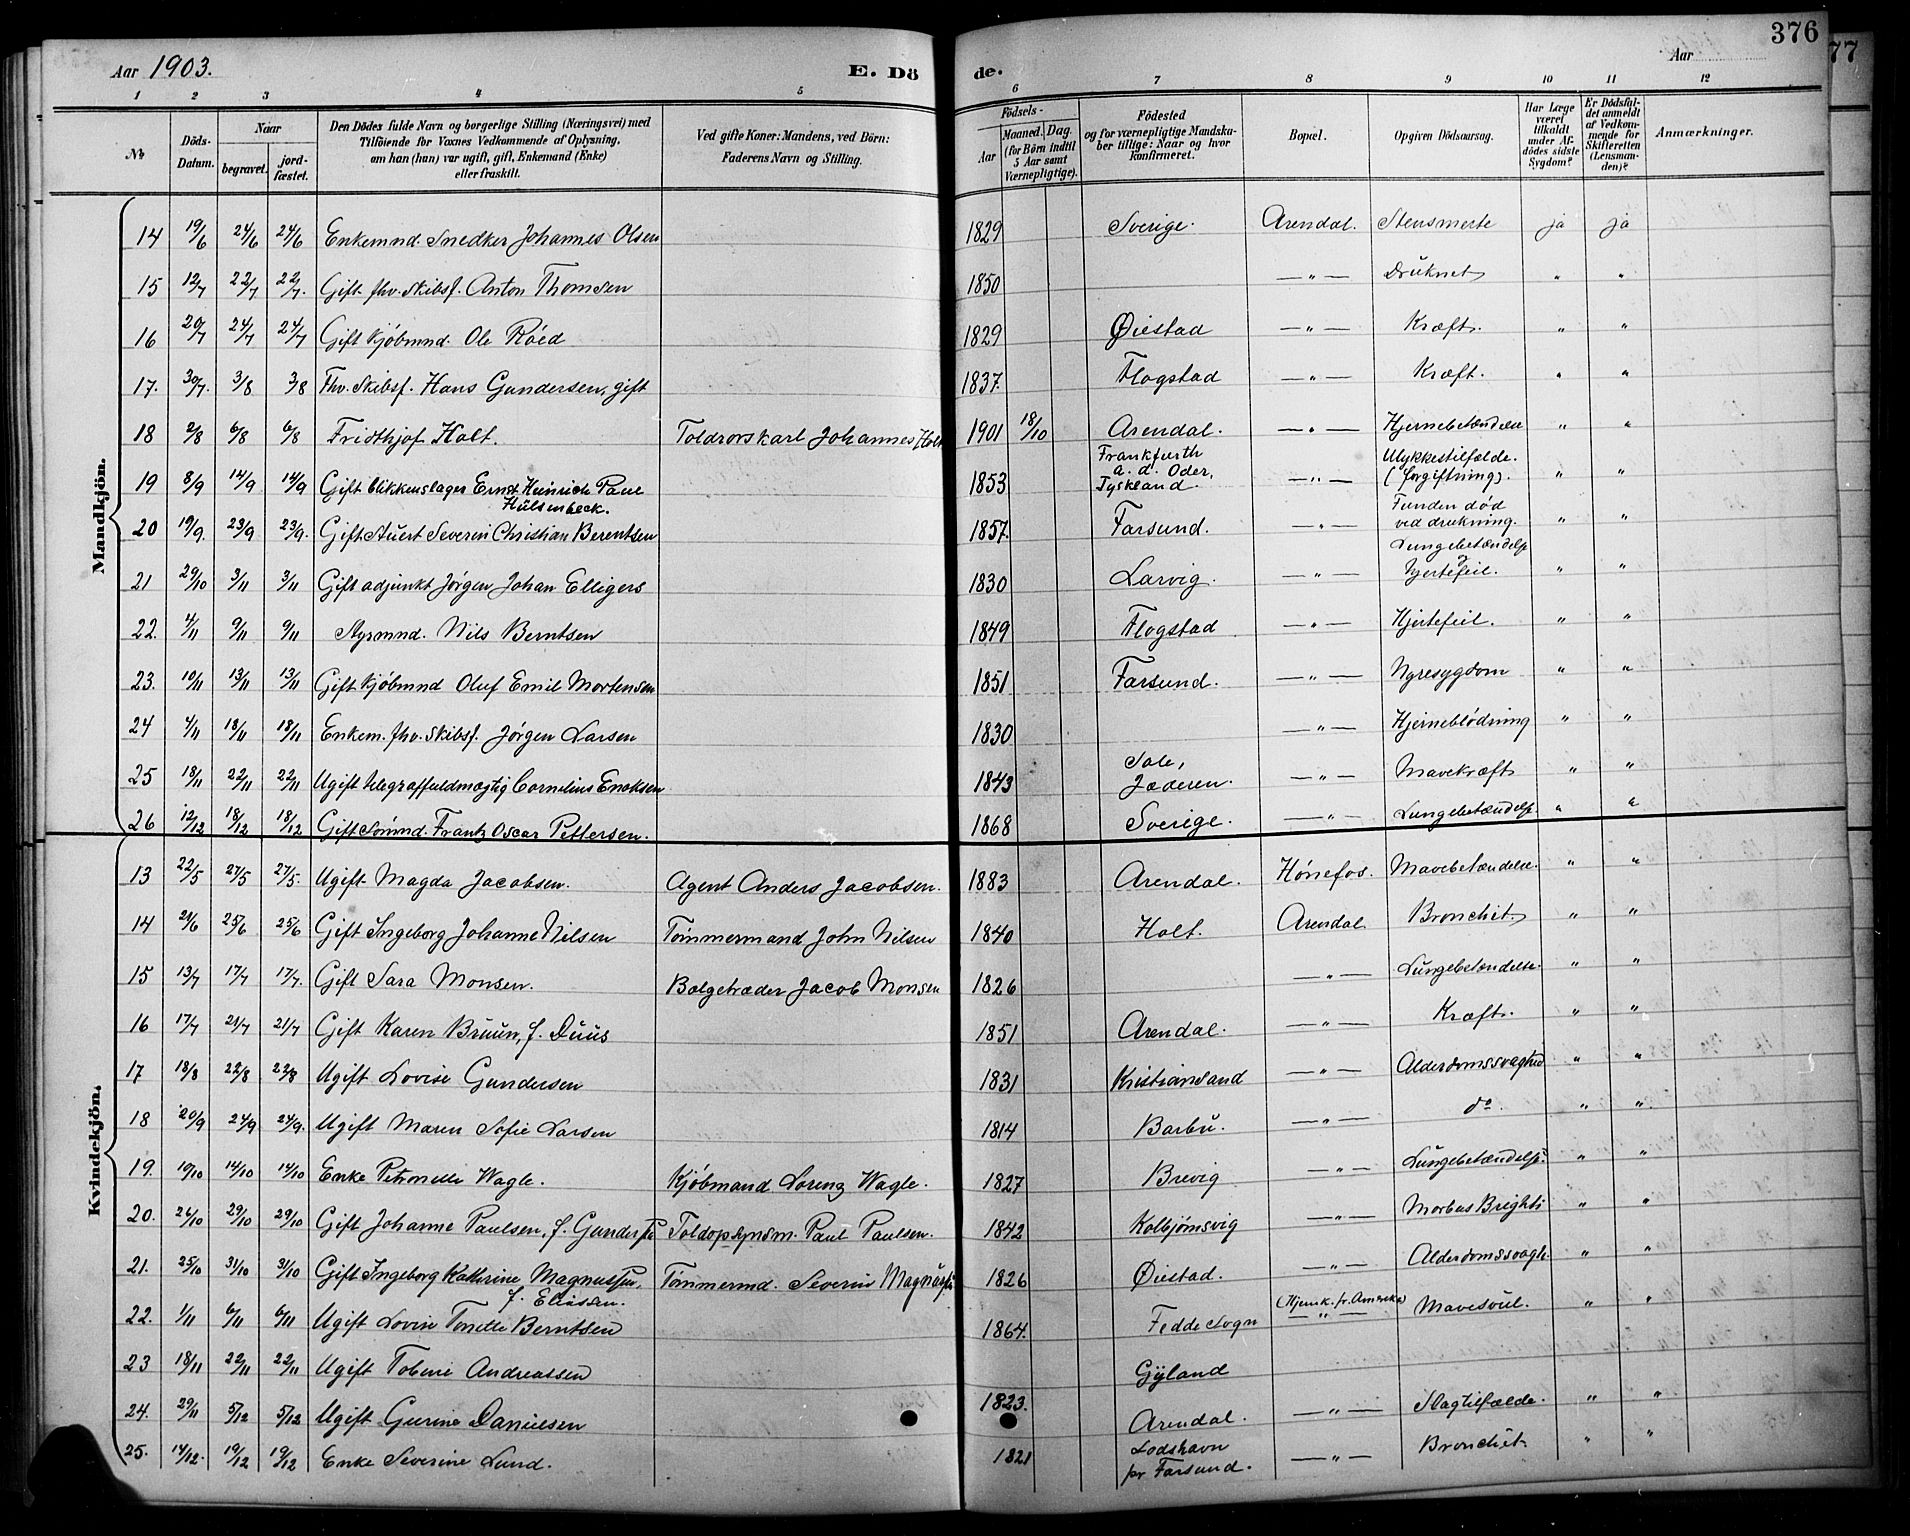 Aar 1903.
E. Dö
de.
Aar
376
77
1 2 3 4 5 6 7 8 9 10 11 12
No
Döds-Datum.
Naar
begravet.
jord-fæstet.
Den Dödes fulde Navn og borgerlige Stilling (Næringsvei) med
Tilföiende for Voxnes Vedkommende af Oplysning,
om han (hun) var ugift, gift, Enkemand (Enke)
eller fraskilt.
Ved gifte Koner: Mandens, ved Börn:
Faderens Navn og Stilling.
Födsels-
Aar
Maaned. Dag.
(for Börn indtil
5 Aar samt
Værnepligtige).
Födested
og for værnepligtige Mandska-
ber tillige: Naar og hvor
konfirmeret.
Bopæl.
Opgiven Dödsaarsag.
Har Læge
været
tilkaldt
under Af-
dödes sidste
Sygdom?
Er Dödsfal-
det anmeldt
af Vedkom-
mende for
Skifteretten
(Lensman-
den)?
Anmærkninger.
Mandkjön.
14 19/6 24/6 24/6 Enkemnd. Snedker Johannes Olsen 1829 Sverige. Arendal. Stensmerte ja ja
15 12/7 22/7 22/7. Gift fhv. Skibsf. Anton Thomsen 1850 —"— Druknet " "
16 20/7 24/7 24/7 Gift Kjöbmnd. Ole Röed 1829 Øiestad —"— Kræft. " "
17. 30/7. 3/8 3/8 Fhv. Skibsf. Hans Gundersen, gift 1837. Flogstad —"— Kræft. " "
18 2/8 6/8 6/8 Fridthjof Holt. Toldrorskarl Johannes Holt 1901 18/10 Arendal. —"— Hjernebetændelse " "
19 8/9 14/9 14/9 Gift blikkenslager Ernst Heinrich Paul
Hülsenbeck. 1853 Frankfurth
a. d. Oder,
Tyskland. —"— Ulykkestilfælde.
(forgiftning). " "
20 19/9. 23/9 23/9. Gift Stuert Severin Christian Berentsen 1857. Farsund. —"— Funden död
ved drukning. " "
21 29/10 3/11 3/11 Gift adjunkt Jörgen Johan Elligers 1830 Larvig. —"— Lungebetændelse
Hjertefeil. " "
22. 4/11 9/11 9/11 Styrmnd. Nils Berntsen 1849 Flogstad —"— Hjertefeil. " "
23. 10/11 13/11 13/11 Gift Kjöbmnd Oluf Emil Mortensen 1851 Farsund. —"— Nyresygdom " "
24 4/11 18/11 18/11 Enkem. fhv. Skibsf. Jörgen Larsen 1830 —"— Hjerneblödning " "
25 18/11 22/11 22/11 Ugift telegraffuldmægtig Cornelius Enoksen 1843 Sole,
Jæderen. —"— Mavekræft " "
26 12/12 18/12 18/12 Gift Sömnd. Frantz Oscar Pettersen. 1868 Sverige. —"— Lungebetændelse " "
Kvindekjön.
13 22/5 27/5 27/5. Ugift Magda Jacobsen. Agent Anders Jacobsen. 1883 Arendal. Hönefos. Mavebetændelse. " "
14 21/6 25/6 25/6 Gift Ingeborg Johanne Nilsen Tömmermand John Nilsen 1840 Holt. Arendal Bronchit " "
15 13/7 17/7 17/7. Gift Sara Monsen. Bælgetræder Jacob Monsen 1826 —"— Lungebetændelse. " "
16 17/7 21/7 21/7 Gift Karen Bruun, f. Duus 1851 Arendal. —"— Kræft. " "
17 18/8 22/8 22/8 Ugift Lovise Gundersen 1831 Kristiansand —"— Alderdomssvaghed " "
18 20/9 24/9 24/9. Ugift Maren Sofie Larsen 1814 Barbu. —"— do. " "
19. 10/10 14/10 14/10 Enke Petronelle Wagle. Kjöbmand Lorenz Wagle. 1827 Brevig —"— Lungebetændelse. " "
20. 26/10 29/10 29/10 Gift Johanne Paulsen, f. Gundersen Toldopsynsm. Paul Paulsen. 1842 Kolbjörnsvig —"— Morbus Brighti " "
21. 25/10 31/10 31/10 Gift Ingeborg Kathrine Magnussen,
f. Eliassen. Tömmermd. Severin Magnussen 1826 Øiestad. —"— Alderdomssvagh. " "
22. 1/11 6/11 6/11 Ugift Lovise Tonette Berntsen 1864. Fedde Sogn (Hjemk. fr. Amerika)
—"— Mavesvul. " "
23 18/11 22/11 22/11 Ugift Tobine Andreassen Gyland
24. 29/11 5/12 5/12 Ugift Gurine Danielsen 1823. Arendal. —"— Slagtilfælde. " "
25. 14/12. 19/12 19/12 Enke Severine Lund. 1821 Lodshavn
pr Farsund. —"— Bronchit " "